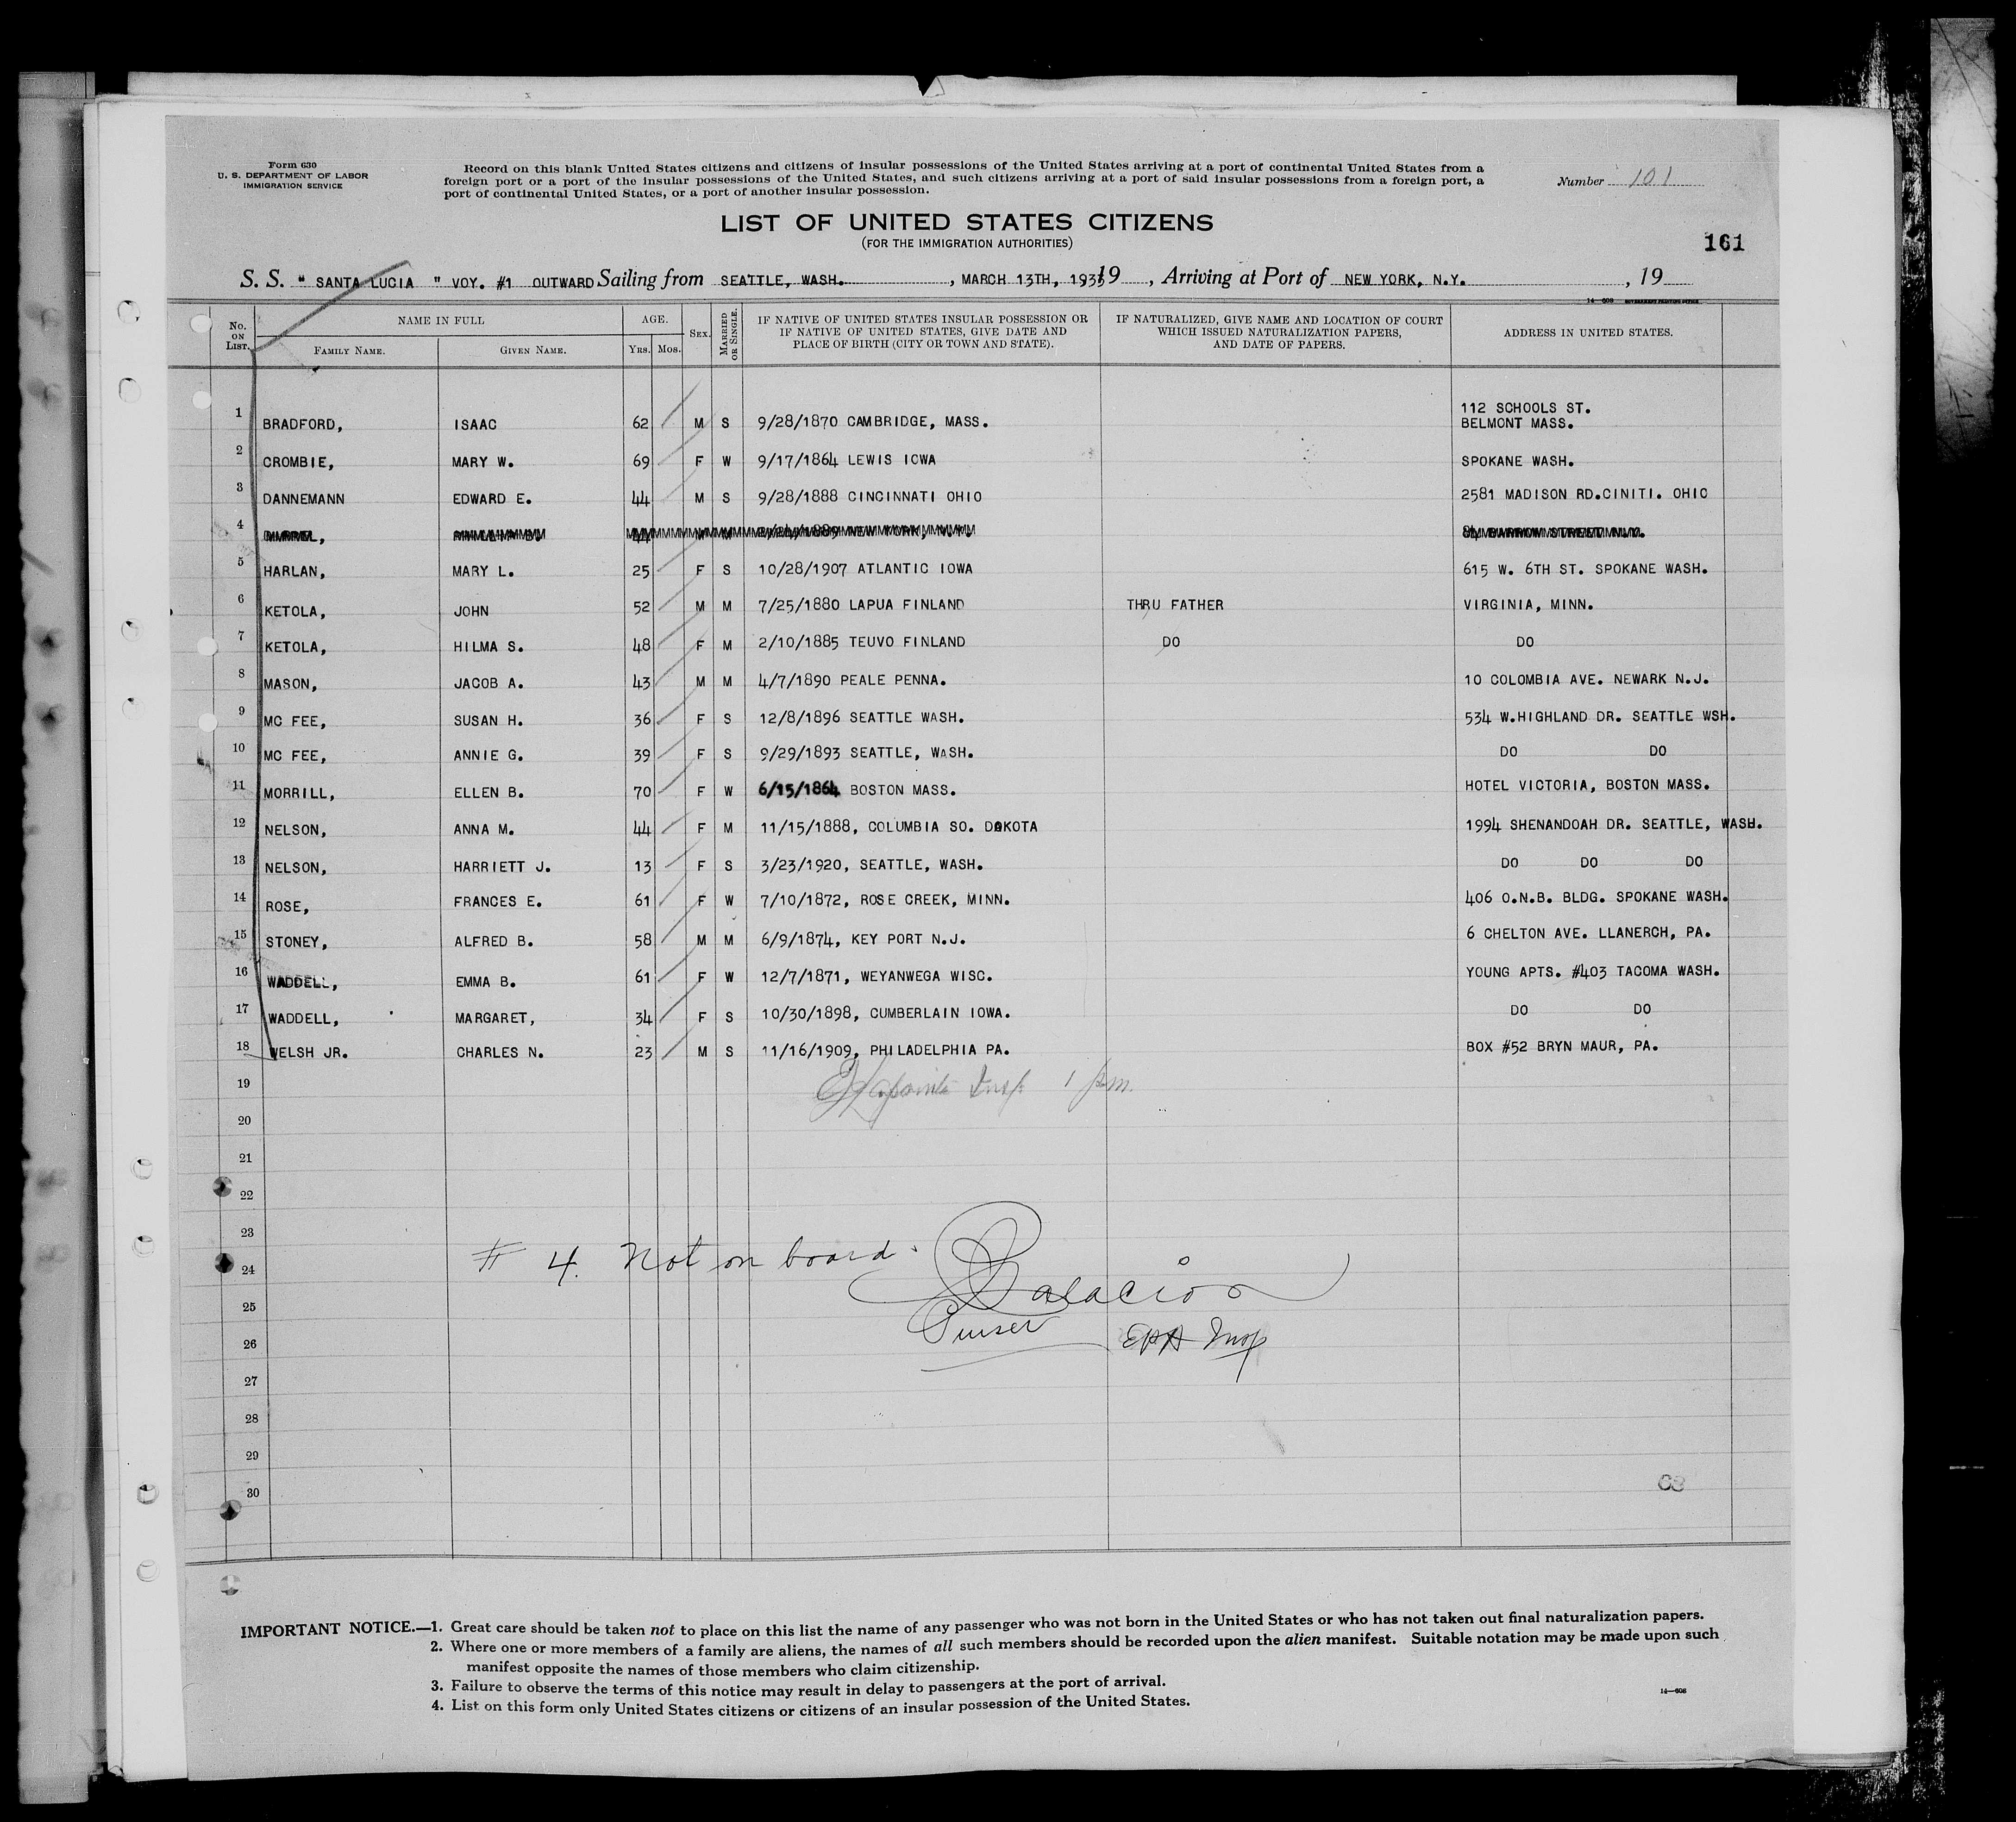 Form 630
U. S. DEPARTMENT OF LABOR
IMMIGRATION SERVICE
Record on this blank United States citizens and citizens of insular possessions of the United States arriving at a port of continental United States from a
foreign port or a port of the insular possessions of the United States, and such citizens arriving at a port of said insular possessions from a foreign port, a
port of continental United States, or a port of another insular possession.
Number 101
LIST OF UNITED STATES CITIZENS
(FOR THE IMMIGRATION AUTHORITIES)
161
S. S. " SANTA LUCIA " VOY. #1 OUTWARD Sailing from SEATTLE, WASH. , MARCH 13TH, 1933 19 , Arriving at Port of NEW YORK, N.Y. , 19
No. ON LIST. NAME IN FULL FAMILY NAME. GIVEN NAME. AGE. YRS. MOS. SEX. MARRIED OR SINGLE. IF NATIVE OF UNITED STATES INSULAR POSSESSION OR IF NATIVE OF UNITED STATES, GIVE DATE AND PLACE OF BIRTH (CITY OR TOWN AND STATE). IF NATURALIZED, GIVE NAME AND LOCATION OF COURT WHICH ISSUED NATURALIZATION PAPERS, AND DATE OF PAPERS. ADDRESS IN UNITED STATES.
1 BRADFORD, ISAAC 62 M S 9/28/1870 CAMBRIDGE, MASS. 112 SCHOOLS ST. BELMONT MASS.
2 CROMBIE, MARY W. 69 F W 9/17/1864 LEWIS IOWA SPOKANE WASH.
3 DANNEMANN EDWARD E. 44 M S 9/28/1888 CINCINNATI OHIO 2581 MADISON RD.CINITI. OHIO
4 NEW YORK, N.Y. STREET N.Y.
5 HARLAN, MARY L. 25 F S 10/28/1907 ATLANTIC IOWA 615 W. 6TH ST. SPOKANE WASH.
6 KETOLA, JOHN 52 M M 7/25/1880 LAPUA FINLAND THRU FATHER VIRGINIA, MINN.
7 KETOLA, HILMA S. 48 F M 2/10/1885 TEUVO FINLAND DO DO
8 MASON, JACOB A. 43 M M 4/7/1890 PEALE PENNA. 10 COLOMBIA AVE. NEWARK N.J.
9 MC FEE, SUSAN H. 36 F S 12/8/1896 SEATTLE WASH. 534 W.HIGHLAND DR. SEATTLE WSH.
10 MC FEE, ANNIE G. 39 F S 9/29/1893 SEATTLE, WASH. DO DO
11 MORRILL, ELLEN B. 70 F W 6/15/1864 BOSTON MASS. HOTEL VICTORIA, BOSTON MASS.
12 NELSON, ANNA M. 44 F M 11/15/1888, COLUMBIA SO. DAKOTA 1994 SHENANDOAH DR. SEATTLE, WASH.
13 NELSON, HARRIETT J. 13 F S 3/23/1920, SEATTLE, WASH. DO DO DO
14 ROSE, FRANCES E. 61 F W 7/10/1872, ROSE CREEK, MINN. 406 O.N.B. BLDG. SPOKANE WASH.
15 STONEY, ALFRED B. 58 M M 6/9/1874, KEY PORT N.J. 6 CHELTON AVE. LLANERCH, PA.
16 WADDELL, EMMA B. 61 F W 12/7/1871, WEYANWEGA WISC. YOUNG APTS. #403 TACOMA WASH.
17 WADDELL, MARGARET, 34 F S 10/30/1898, CUMBERLAIN IOWA. DO DO
18 WELSH JR. CHARLES N. 23 M S 11/16/1909, PHILADELPHIA PA. BOX #52 BRYN MAUR, PA.
19 Insp. 1 p.m.
20
21
22
23
24 # 4. Not on board.
25 Palacios
26 Purser Insp
27
28
29
30
68
IMPORTANT NOTICE.—1. Great care should be taken not to place on this list the name of any passenger who was not born in the United States or who has not taken out final naturalization papers.
2. Where one or more members of a family are aliens, the names of all such members should be recorded upon the alien manifest. Suitable notation may be made upon such
manifest opposite the names of those members who claim citizenship.
3. Failure to observe the terms of this notice may result in delay to passengers at the port of arrival.
4. List on this form only United States citizens or citizens of an insular possession of the United States.
14—608